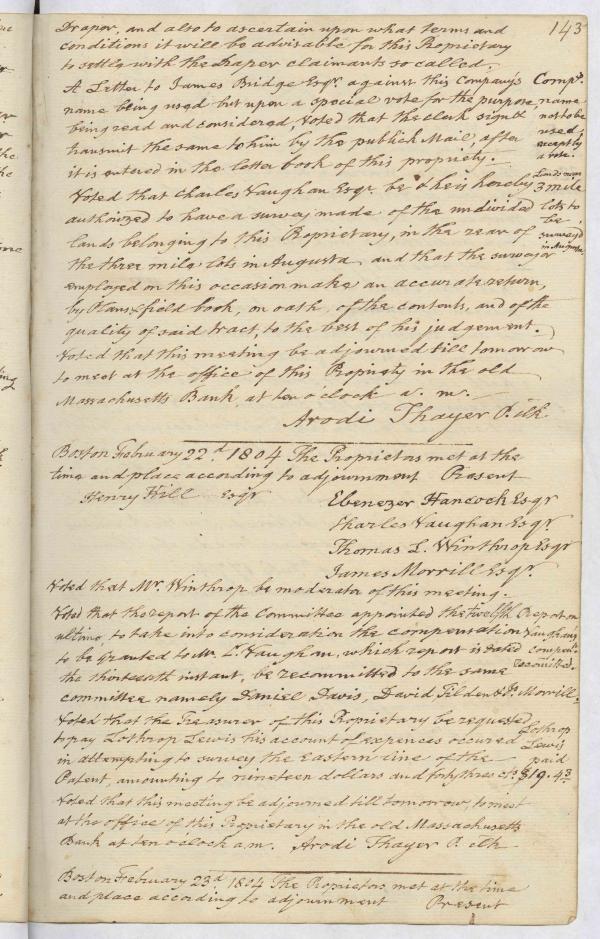 143
Draper, and also to ascertain upon what terms and
conditions it will be advisable for this Proprietary
to settle with the Draper claimants so called.
A Letter to James Bridge Esqr. against this Company's
name being used but upon a special vote for the purpose
being read and considered, Voted that the clerk sign &
transmit the same to him by the publick Mail, after
it is entered in the letter book of this propriety.
Compy.
name
not to be
used,
except by
a vote.
Voted that Charles Vaughan Esqr. be & he is hereby
authorized to have a survey made of the undivided
lands belonging to this Proprietary, in the rear of
the three mile lots in Augusta and that the surveyor
employed on this occasion make an accurate return,
by Plans & field book, on oath, of the contents, and of the
quality of said tract, to the best of his judgement.
Lands rear
3 mile
lots to
be
surveyd
in Augusta
Voted that this meeting be adjourned till tomorrow
to meet at the office of this Propriety in the old
Massachusetts Bank at ten o'clock a. m.
Arodi Thayer P. clk.
Boston February 22d. 1804 The Proprietors met at the
time and place according to adjournment Present
Henry Hill Esqr
Ebenezer Hancock Esqr
Charles Vaughan Esqr.
Thomas L. Winthrop Esqr
James Morrill Esqr.
Voted that Mr. Winthrop be moderator of this meeting.
Voted that the report of the Committee appointed the twelfth
ultimo, to take into consideration the compensation
to be granted to Mr. C. Vaughan, which report is dated
the thirteenth instant, be recommitted to the same
committee namely Daniel Davis, David Tilden & Js. Morrill.
Report on
Vaughan's
compens.
recomitted.
Voted that the Treasurer of this Proprietary be requested
to pay Lothrop Lewis his account of expences occured
in attempting to survey the Eastern line of the
Patent, amounting to nineteen dollars and forty three cts
Lothrop
Lewis
paid
$19.43
Voted that this meeting be adjourned till tomorrow, to meet
at the office of this Proprietary in the old Massachusetts
Bank at ten o'clock a.m. Arodi Thayer P. clk
Boston February 23d. 1804 The Proprietors met at the time
and place according to adjournment Present